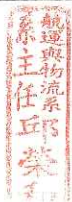 航運與物流系
系主任丘榮